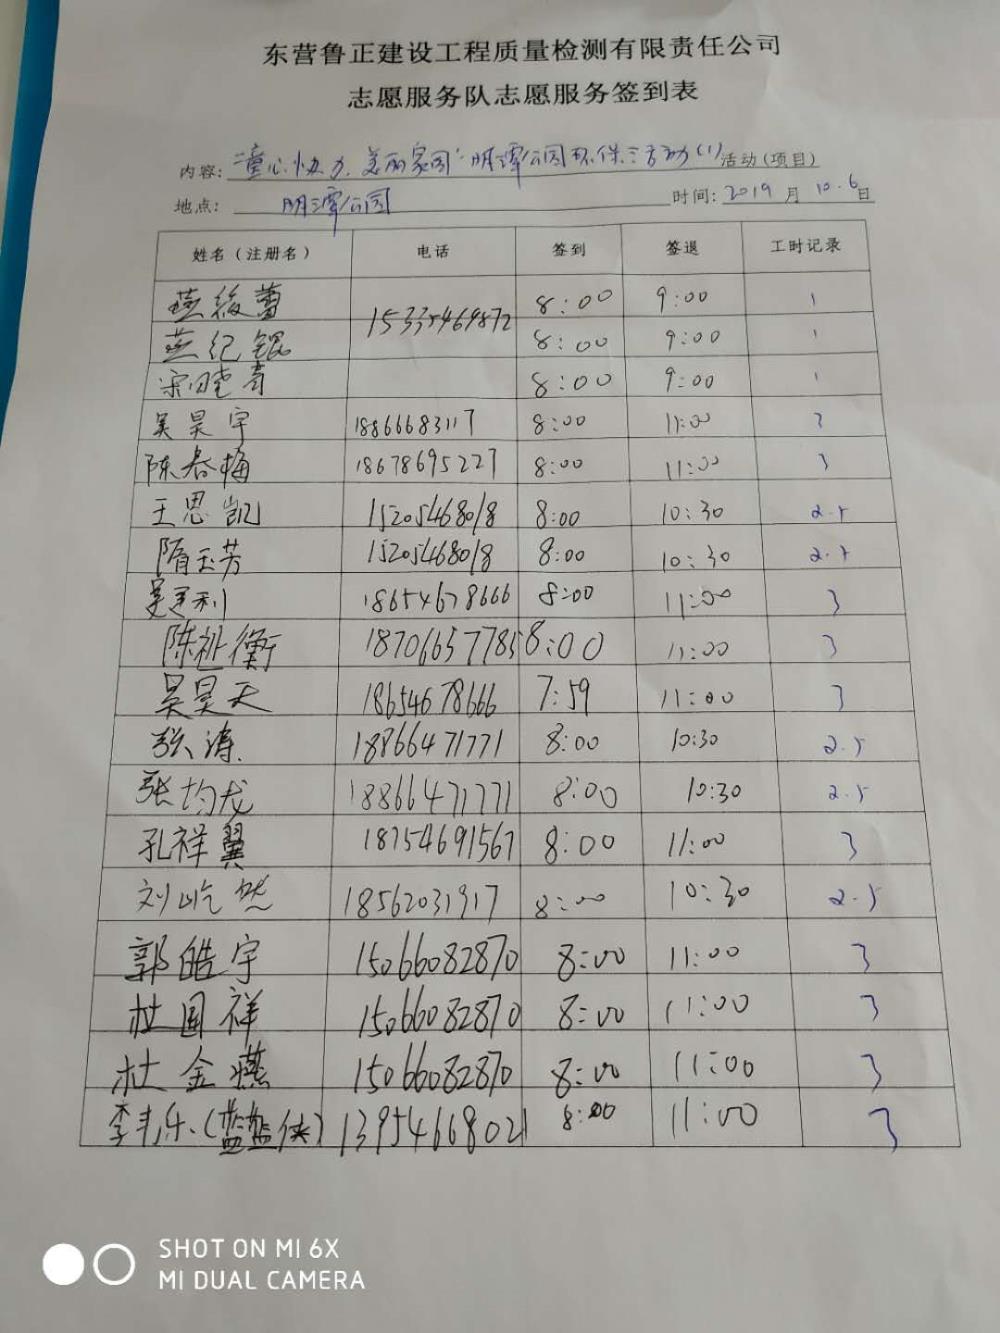 东营鲁正建设工程质量检测有限责任公司
志愿服务队志愿服务签到表
内容: "童心协力.美丽家园"明潭公园环保活动(1) 活动(项目)
地点: 明潭公园 时间: 2019 月 10.6 日
姓名(注册名) 电话 签到 签退 工时记录
燕 蕾 15335469872 8:00 9:00 1
燕纪锟 8:00 9:00 1
宋 青 8:00 9:00 1
吴昊宇 18866683117 8:00 11:00 3
陈春梅 18678695227 8:00 11:00 3
王思凯 15205468018 8:00 10:30 2.5
隋玉芳 15205468018 8:00 10:30 2.5
利 18654678666 8:00 11:00 3
陈祉衡 18706657785 8:00 11:00 3
吴昊天 18654678666 7:59 11:00 3
张涛 18866471771 8:00 10:30 2.5
张均龙 18866471771 8:00 10:30 2.5
孔祥翼 18754691567 8:00 11:00 3
刘屹然 18562031917 8:00 10:30 2.5
郭皓宇 15066082870 8:00 11:00 3
杜国祥 15066082870 8:00 11:00 3
杜金燕 15066082870 8:00 11:00 3
李 乐(蓝 侠) 13954668021 8:00 11:00 3
SHOT ON MI 6X
MI DUAL CAMERA